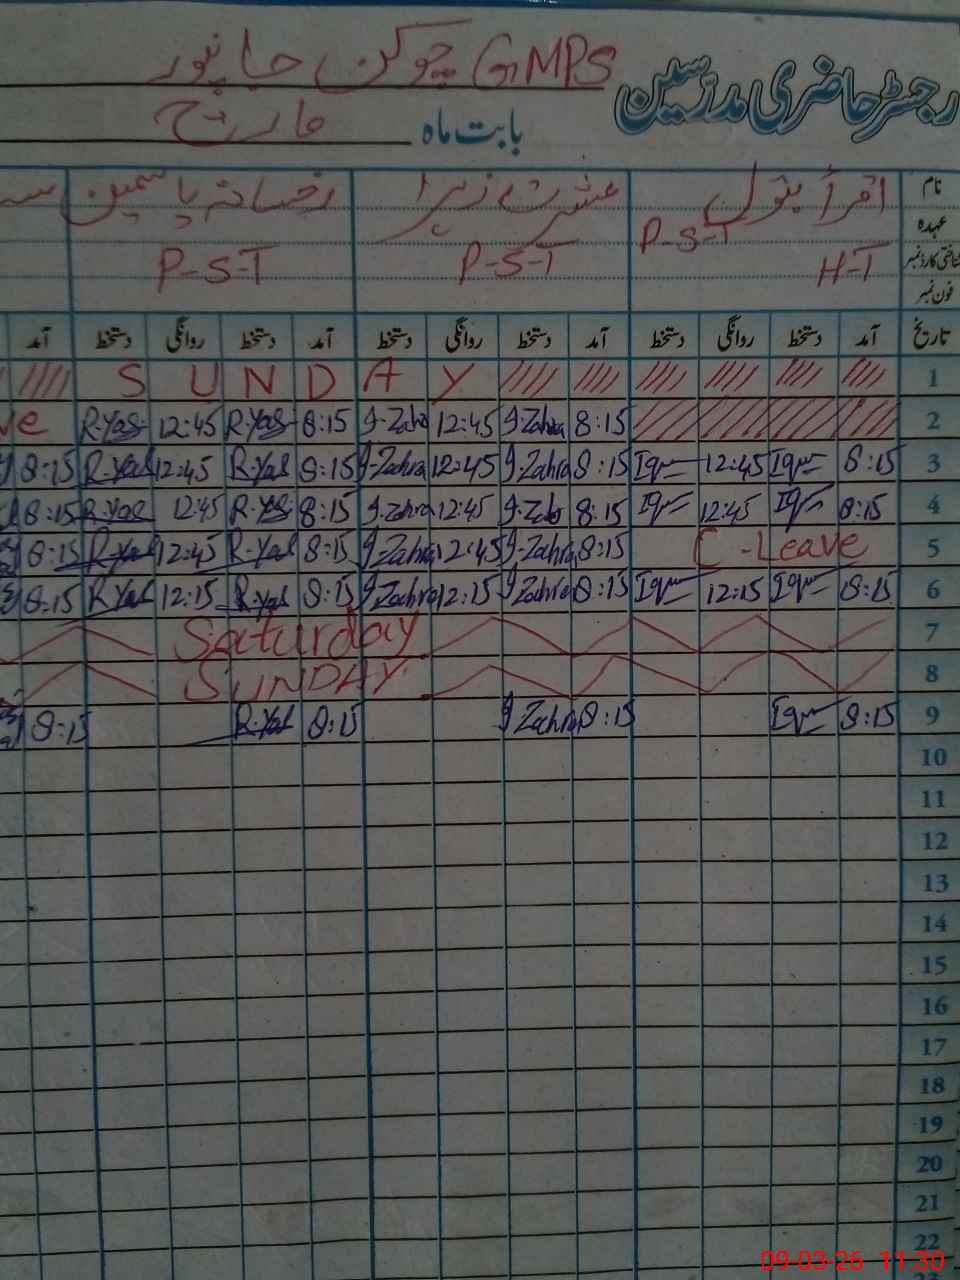 رجسٹر حاضری مدرسین GMPS چوکن جانپور
بابت ماہ مارچ
نام اقرأ بتول عشرت زہرا رخسانہ یاسمین
عہدہ P-S-T
شناختی کارڈ نمبر H-T P-S-T P-S-T
فون نمبر
تاریخ آمد دستخط روانگی دستخط آمد دستخط روانگی دستخط آمد دستخط روانگی دستخط آمد
1 SUNDAY
2 8:15 I-Zahra 12:45 I-Zahra 8:15 R-Yas 12:45 R-Yas
3 8:15 Iqra 12:45 Iqra 8:15 I-Zahra 12:45 I-Zahra 8:15 R-Yas 12:45 R-Yas 8:15
4 8:15 Iqra 12:45 Iqra 8:15 I-Zahra 12:45 I-Zahra 8:15 R-Yas 12:45 R-Yas 8:15
5 C-Leave 8:15 I-Zahra 12:45 I-Zahra 8:15 R-Yas 12:45 R-Yas 8:15
6 8:15 Iqra 12:15 Iqra 8:15 I-Zahra 12:15 I-Zahra 8:15 R-Yas 12:15 R-Yas 8:15
7 Saturday
8 SUNDAY
9 8:15 Iqra 8:15 I-Zahra 8:15 R-Yas 8:15
10
11
12
13
14
15
16
17
18
19
20
21
22
09-03-26 11:30